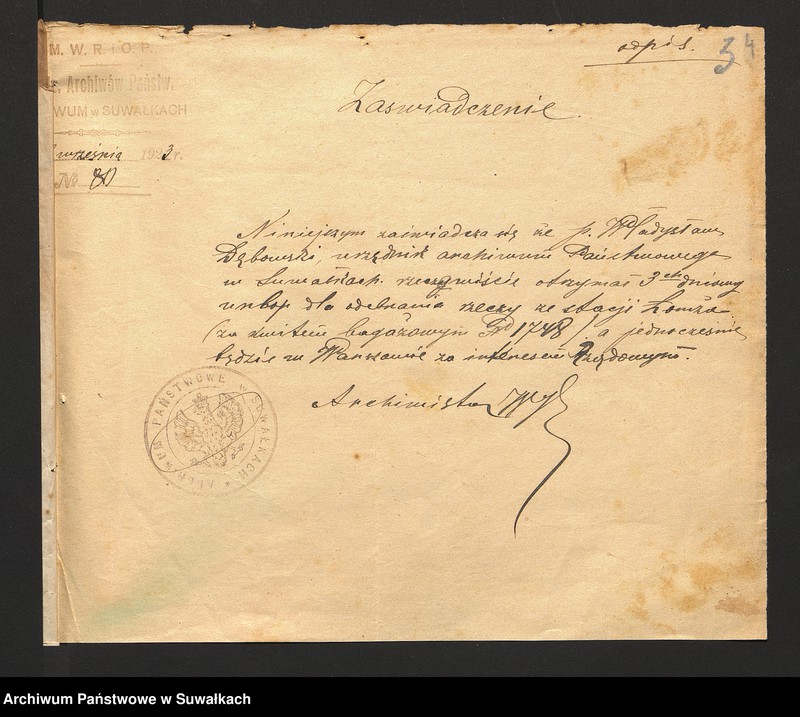 M. W. R. i O. P.
Archiwów Państw.
WUM w SUWAŁKACH
września 1923 r.
№ 80
odpis.
34
Zaświadczenie.
Niniejszym zaświadcza się że p. Władysław
Dębowski, urzędnik archiwum Państwowego
w Suwałkach rzeczywiście otrzymał 3ch dniowy
urlop dla odebrania rzeczy ze stacji Łomża
(za kwitem bagażowym 1748), a jednocześnie
będzie w Warszawie za interesem Rządowym.
Archiwista
ARCHIWUM PAŃSTWOWE w SUWAŁKACH
Archiwum Państwowe w Suwałkach